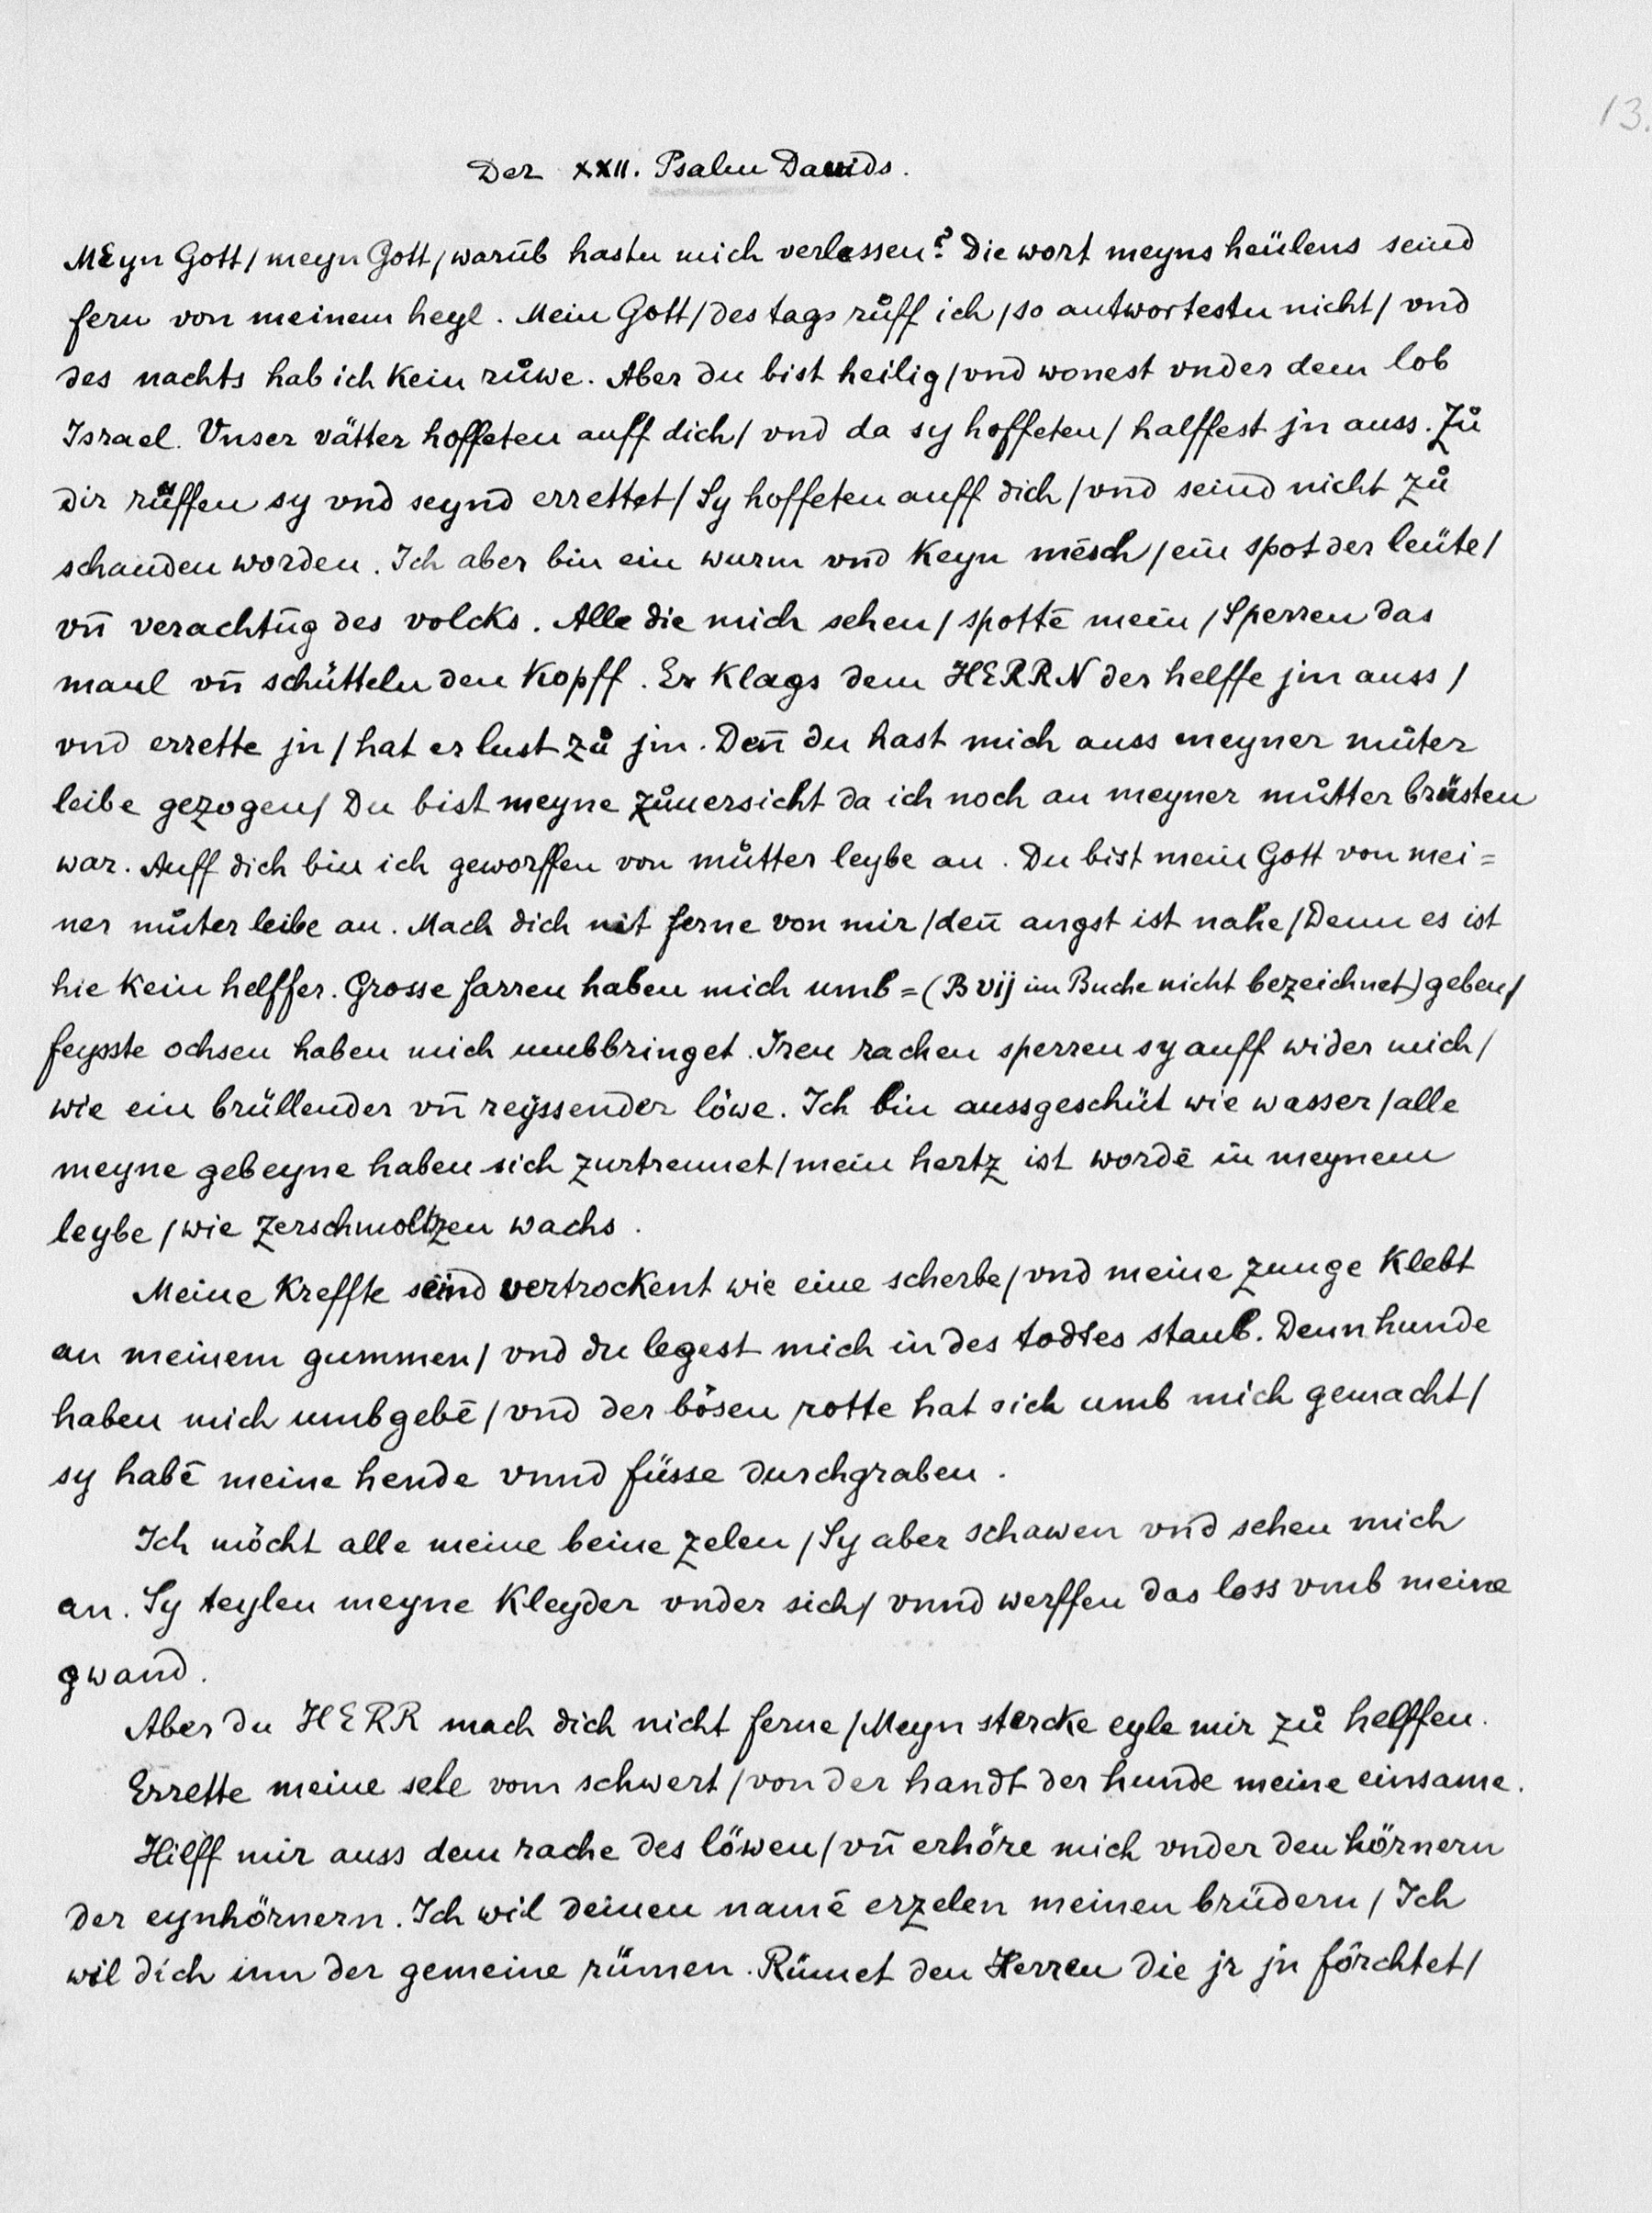 13.
Der XXII. Psalm Dauids.
MEyn Gott / meyn Gott / warūb hastu mich verlassen? Die wort meyns heülens seind
fern von meinem heyl. Mein Gott / des tags růff ich / so antwortestu nicht / vnd
des nachts hab ich kein růwe. Aber du bist heilig / vnd wonest vnder dem lob
Israel. Vnser vätter hoffeten auff dich / vnd da sy hoffeten / halffest jn auss. Zů
dir růffen sy vnd seynd errettet / Sy hoffeten auff dich / vnd seind nicht zů
schanden worden. Ich aber bin ein wurm vnd keyn mēsch / ein spot der leüte /
vn̄ verachtūg des volcks. Alle die mich sehen / spottē mein / Sperren das
maul vn̄ schütteln den kopff. Er klags dem HERRN der helffe jm auss /
vnd errette jn / hat er lust zů jm. Den̄ du hast mich auss meyner můter
leibe gezogen / Du bist meyne zůuersicht da ich noch an meyner můtter brüsten
war. Auff dich bin ich geworffen von můtter leybe an. Du bist mein Gott von mei=
ner můter leibe an. Mach dich nit ferne von mir / den̄ angst ist nahe / Denn es ist
hie kein helffer. Grosse farren haben mich umb= (B vij im Buche nicht bezeichnet) geben /
feysste ochsen haben mich umbbringet. Iren rachen sperren sy auff wider mich /
wie ein brüllender vn̄ reyssender löwe. Ich bin aussgeschüt wie wasser / alle
meyne gebeyne haben sich zurtrennet / mein hertz ist wordē in meynem
leybe / wie zerschmoltzen wachs.
Meine kreffte seind vertrockent wie eine scherbe / vnd meine zunge klebt
an meinem gummen / vnd du legest mich in des todtes staub. Denn hunde
haben mich umbgebē / vnd der bösen rotte hat sich umb mich gemacht /
sy habē meine hende vnnd füsse durchgraben.
Ich möcht alle meine beine zelen / Sy aber schawen vnd sehen mich
an. Sy teylen meyne kleyder vnder sich / vnnd werffen das loss vmb meine
gwand.
Aber du HERR mach dich nicht ferne / Meyn stercke eyle mir zů helffen.
Errette meine sele vom schwert / von der handt der hunde meine einsame.
Hilff mir auss dem rache des löwen / vn̄ erhöre mich vnder den hörnern
der eynhörnern. Ich wil deinen namē erzelen meinen brüdern / Ich
wil dich inn der gemeine rümen. Rümet den Herren die jr jn förchtet /